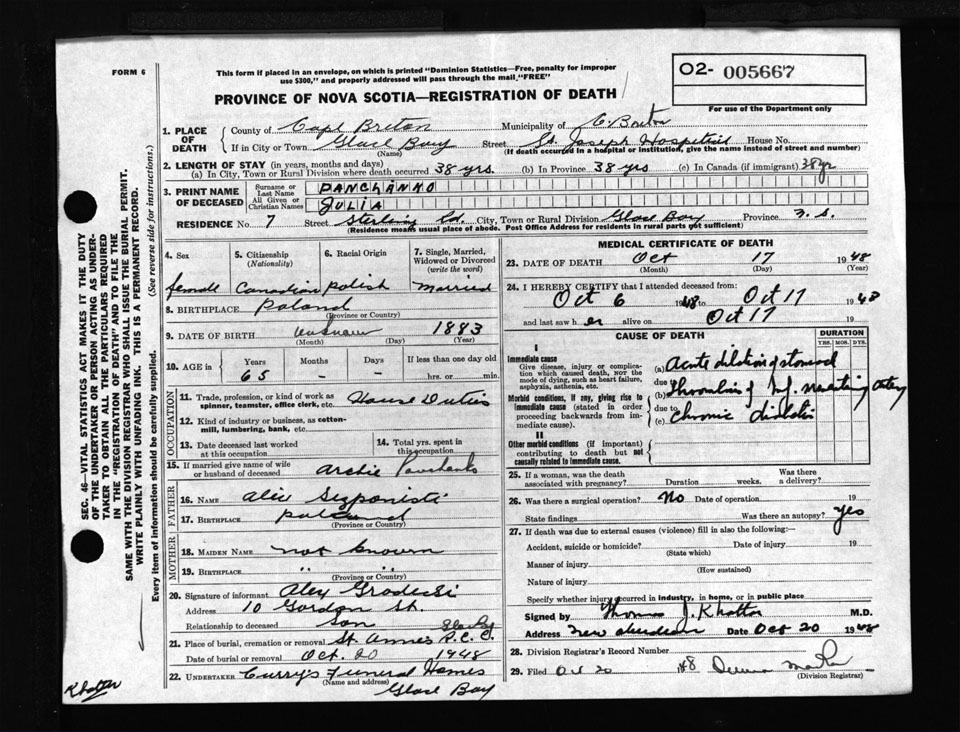 FORM 6
This form if placed in an envelope, on which is printed "Dominion Statistics—Free, penalty for improper
use $300," and properly addressed will pass through the mail, "FREE"
O2- 005667
For use of the Department only
PROVINCE OF NOVA SCOTIA—REGISTRATION OF DEATH
1. PLACE OF DEATH
County of Cape Breton Municipality of C. Breton
If in City or Town Glace Bay (Name) Street St Joseph Hospital House No.
(If death occurred in a hospital or institution, give the name instead of street and number)
2. LENGTH OF STAY (in years, months and days)
(a) In City, Town or Rural Division where death occurred 38 yrs. (b) In Province 38 yrs (c) In Canada (if immigrant) 38 yr
3. PRINT NAME OF DECEASED
Surname or Last Name PANCHANKO
All Given or Christian Names JULIA
RESIDENCE No. 7 Street Sterling Rd. City, Town or Rural Division Glace Bay Province N. S.
(Residence means usual place of abode. Post Office Address for residents in rural parts not sufficient)
4. Sex
female
5. Citizenship (Nationality)
Canadian
6. Racial Origin
Polish
7. Single, Married, Widowed or Divorced (write the word)
Married
8. BIRTHPLACE Poland
(Province or Country)
9. DATE OF BIRTH unknown 1883
(Month) (Day) (Year)
10. AGE in
Years Months Days If less than one day old
65 - - hrs. or min.
OCCUPATION
11. Trade, profession, or kind of work as spinner, teamster, office clerk, etc. House Duties
12. Kind of industry or business, as cotton-mill, lumbering, bank, etc.
13. Date deceased last worked at this occupation
14. Total yrs. spent in this occupation
15. If married give name of wife or husband of deceased Archie
FATHER
16. NAME Alex
17. BIRTHPLACE Poland
(Province or Country)
MOTHER
18. MAIDEN NAME not known
19. BIRTHPLACE " "
(Province or Country)
20. Signature of informant Alex Grodecki
Address 10 Gordon St.
Relationship to deceased Son Glace Bay
21. Place of burial, cremation or removal St. Annes R.C.C.
Date of burial or removal Oct. 20 1948
22. UNDERTAKER Curry's Funeral Homes
(Name and address)
Glace Bay
MEDICAL CERTIFICATE OF DEATH
23. DATE OF DEATH Oct 17 1948
(Month) (Day) (Year)
24. I HEREBY CERTIFY that I attended deceased from:
Oct 6 1948 to Oct 17 1948
and last saw her alive on Oct 17 19
CAUSE OF DEATH
DURATION
YRS. MOS. DYS.
I
Immediate cause
Give disease, injury or complication which caused death, not the mode of dying, such as heart failure, asphyxia, asthenia, etc.
(a) Acute dilation of stomach
due to
Morbid conditions, if any, giving rise to immediate cause (stated in order proceeding backwards from immediate cause).
(b) Thrombosis of Inf. mesenteric artery
due to
(c) Chronic diabetes
II
Other morbid conditions (if important) contributing to death but not causally related to immediate cause.
25. If a woman, was the death associated with pregnancy? Duration weeks. Was there a delivery?
26. Was there a surgical operation? No Date of operation 19
State findings Was there an autopsy? yes
27. If death was due to external causes (violence) fill in also the following:—
Accident, suicide or homicide? Date of injury 19
(State which)
Manner of injury
(How sustained)
Nature of injury
Specify whether injury occurred in industry, in home, or in public place
Signed by Thomas J. Khattar M.D.
Address New Aberdeen Date Oct 20 1948
28. Division Registrar's Record Number
29. Filed Oct 20 48
(Division Registrar)
SEC. 46—VITAL STATISTICS ACT MAKES IT THE DUTY
OF THE UNDERTAKER OR PERSON ACTING AS UNDER-
TAKER TO OBTAIN ALL THE PARTICULARS REQUIRED
IN THE "REGISTRATION OF DEATH" AND TO FILE THE
SAME WITH THE DIVISION REGISTRAR WHO SHALL ISSUE THE BURIAL PERMIT.
WRITE PLAINLY WITH UNFADING INK. THIS IS A PERMANENT RECORD.
Every item of information should be carefully supplied. (See reverse side for instructions.)
Khattar